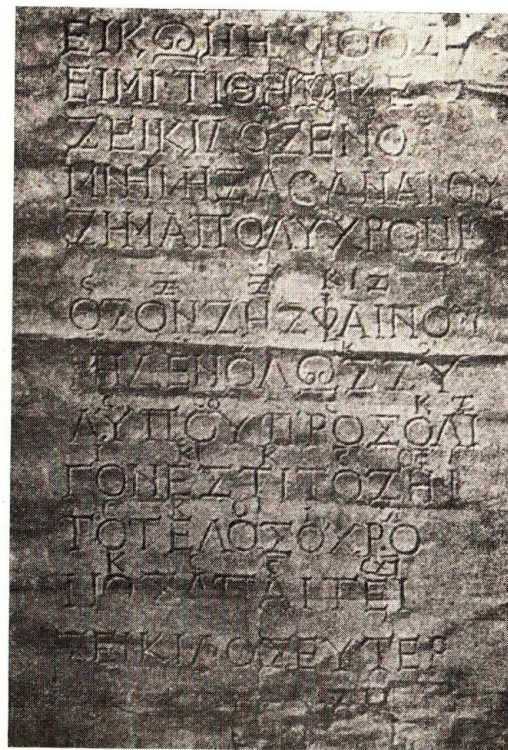 ΕΙΚΩΝΗΛΙΘΟΣ
ΕΙΜΙΤΙΘΗΣΙΜΕ
ΣΕΙΚΙΛΟΣΕΝΘΑ
ΜΝΗΜΗΣΑΘΑΝΑΤΟΥ
ΣΗΜΑΠΟΛΥΧΡΟΝΙ
C Z Z ΚΙΖ
ΟΣΟΝΖΗΣΦΑΙΝΟΥ
ΜΗΔΕΝΟΛΩΣΣΥ
Κ Ζ
ΛΥΠΟΥΠΡΟΣΟΛΙ
ΓΟΝΕΣΤΙΤΟΖΗΝ
ΤΟΤΕΛΟΣΟΧΡΟ
Κ C
ΝΟΣΑΠΑΙΤΕΙ
ΣΕΙΚΙΛΟΣΕΥΤΕΡ
ΖΗ